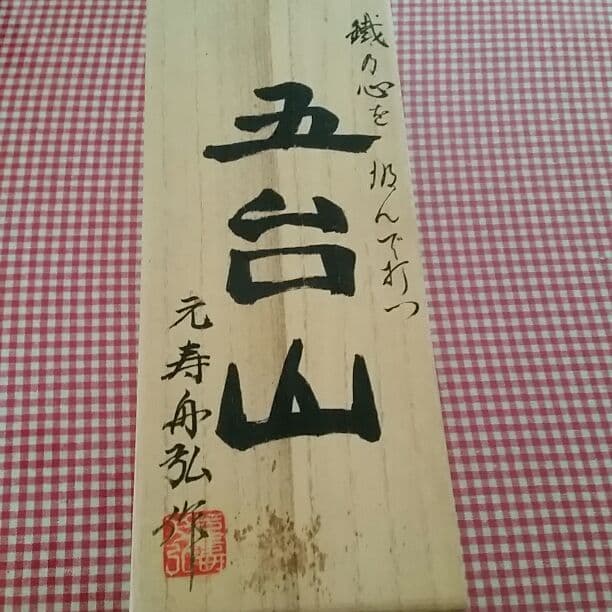 鐵乃心を 汲んで打つ
五台山
元寿舟弘作